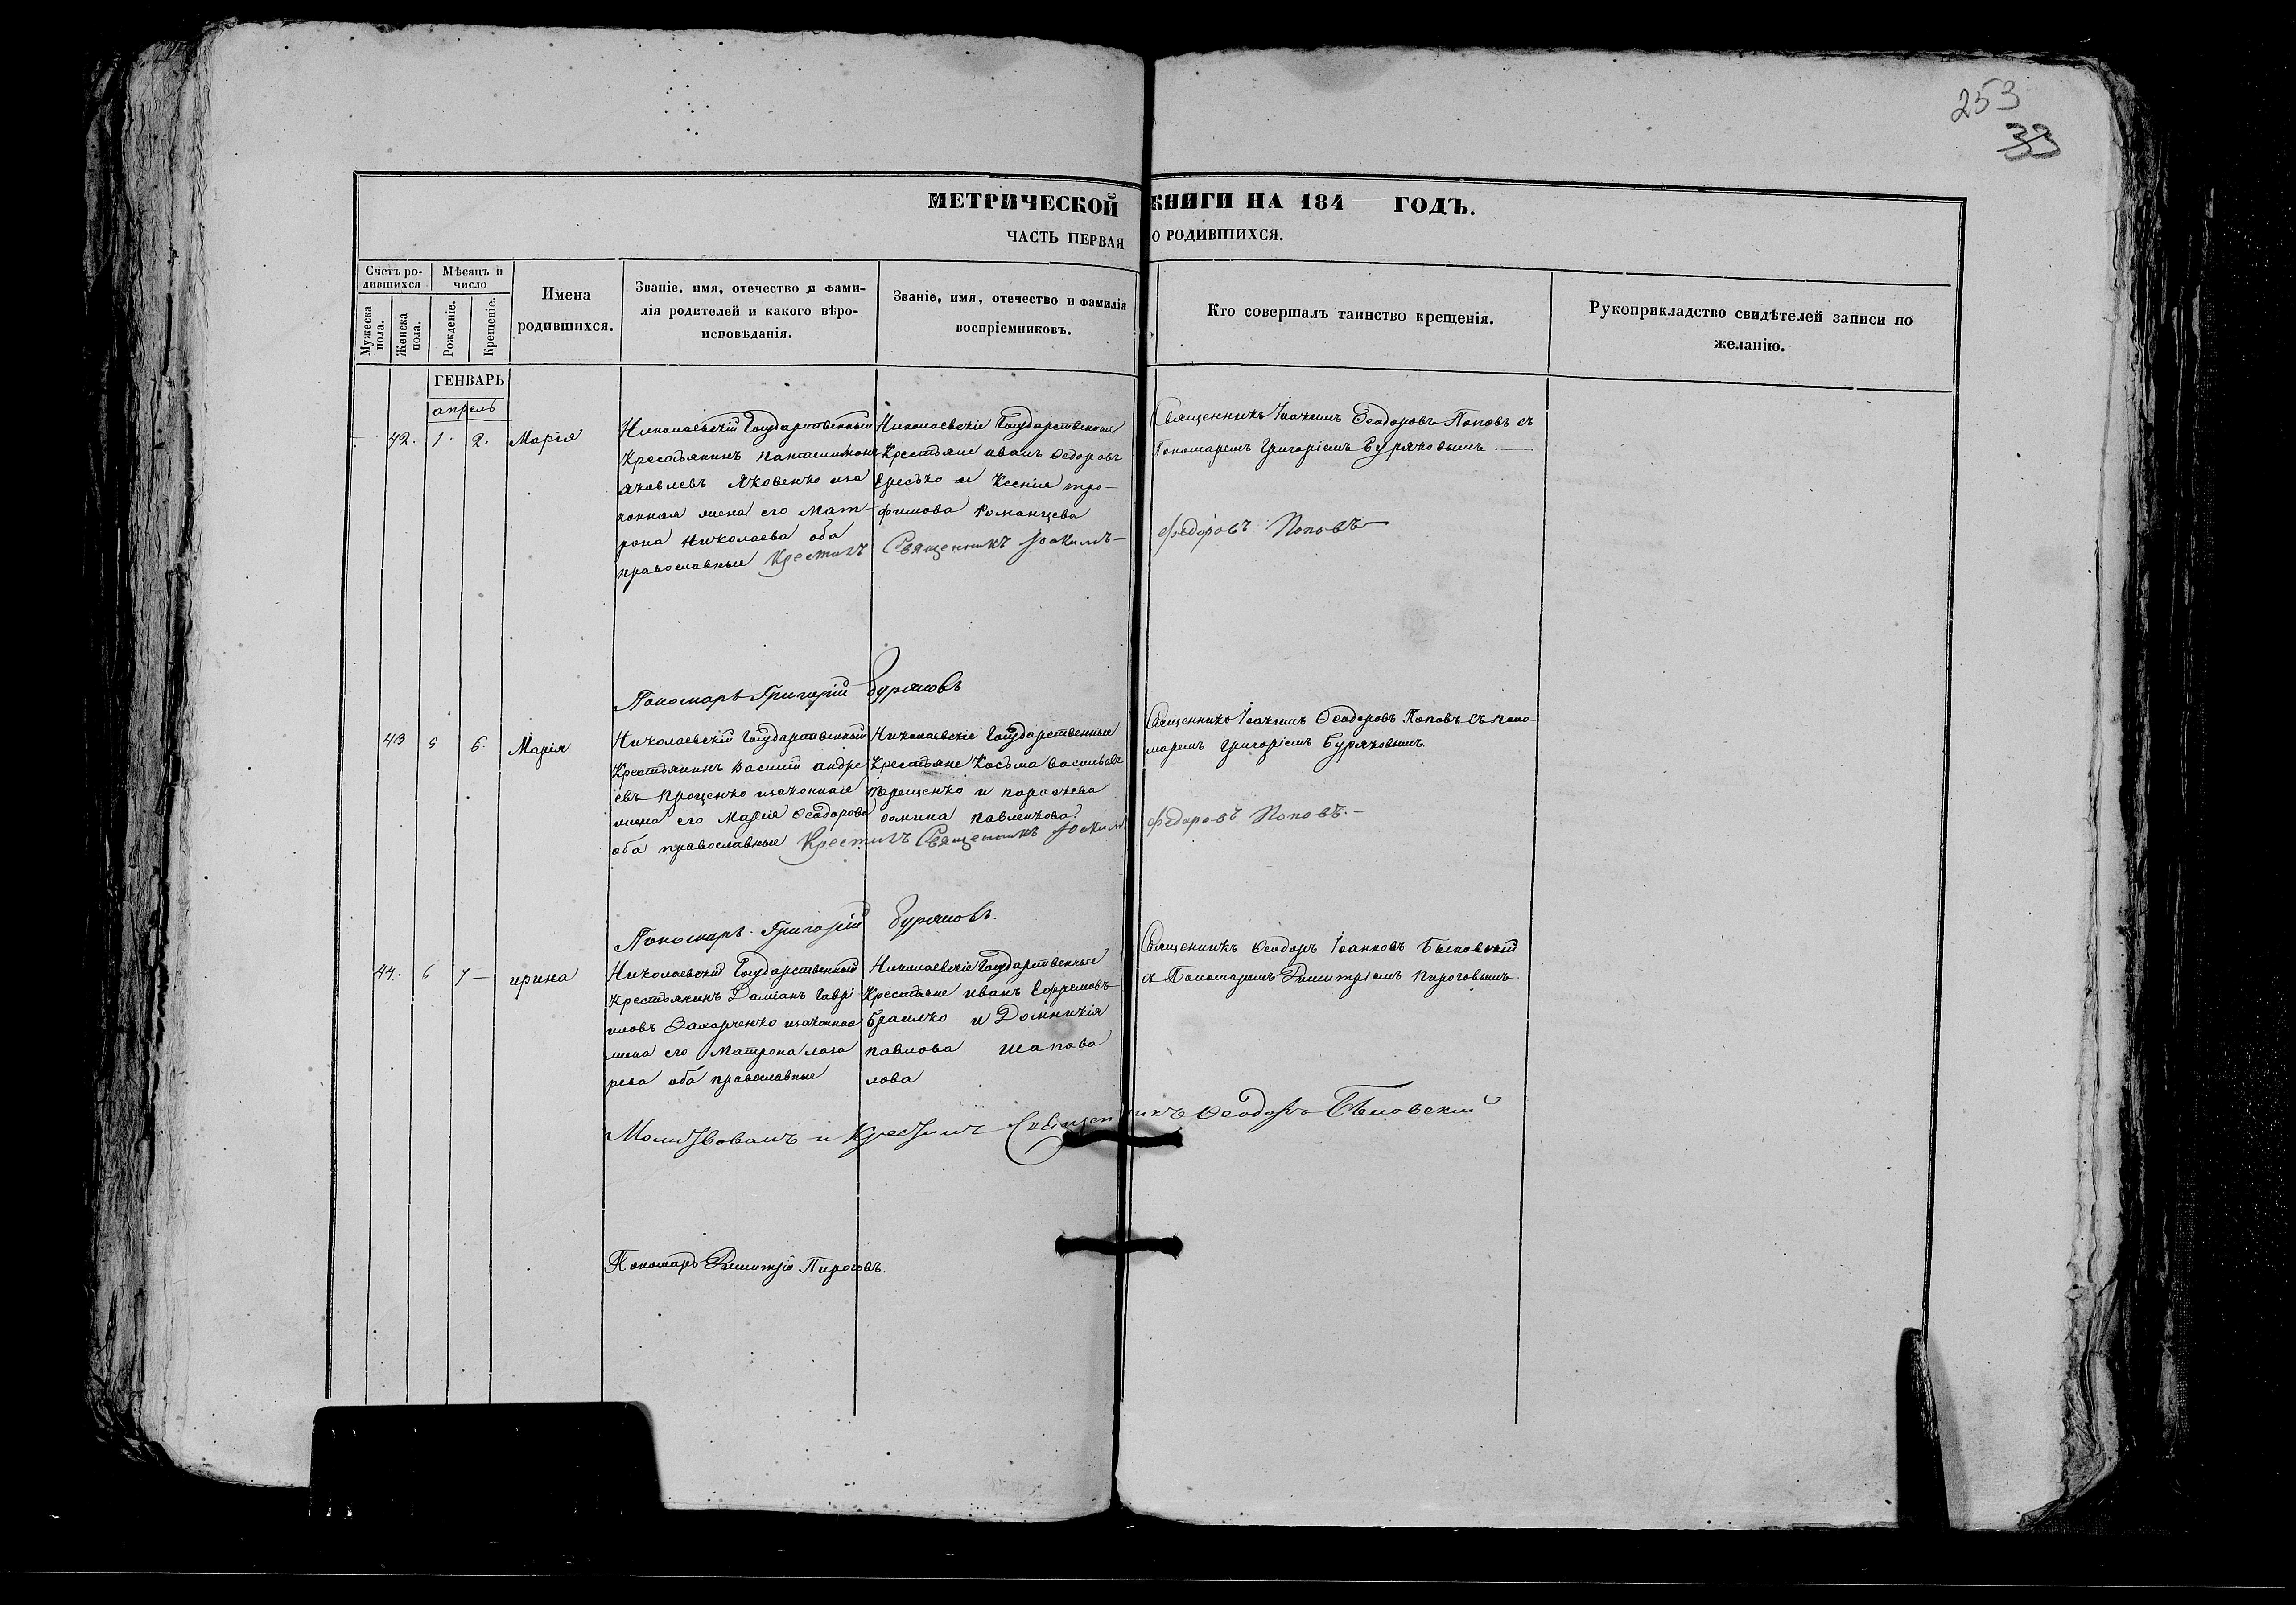 253
33
МЕТРИЧЕСКОЙ КНИГИ НА 184 ГОДЪ.
ЧАСТЬ ПЕРВАЯ О РОДИВШИХСЯ.
Счетъ ро-
дившихся
Мѣсяцъ и
число
Мужеска
пола.
Женска
пола.
Рожденіе.
Крещеніе.
Имена
родившихся.
Званіе, имя, отечество и фами-
лія родителей и какого вѣро-
исповѣданія.
Званіе, имя, отечество и фамилія
воспріемниковъ.
Кто совершалъ таинство крещенія.
Рукоприкладство свидѣтелей записи по
желанію.
ГЕНВАРЬ
апрель
42. 1. 2. Марія
Николаевскій Государственный
Крестьянинъ Пантелимонъ
Яковлевъ Яковенко иза
конная жена его Мат
рона Николаева оба
православные
Николаевскіе Государственные
Крестьяне иванъ Федоровъ
Ересько и Ксенія тро-
фимова Романцева
Священникъ Іоакимъ Феодоровъ Поповъ съ
Пономаремъ Григоріемъ Буряковымъ.
Крестилъ Священникъ Іоакимъ Федоровъ Поповъ
Пономаръ Григорій Буряковъ
43 5 6. Марія
Николаевскій Государственный
Крестьянинъ Василій андре
евъ Проценко изаконная
жена его Марія Феодорова
оба православные
Николаевскіе Государственные
Крестьяне Косьма Васильевъ
Терещенко и параскева
фомина Павленкова
Священникъ Іоакимъ Феодоровъ Поповъ съ поно-
маремъ Григоріемъ Буряковымъ
Крестилъ Священникъ Іоакимъ Федоровъ Поповъ.
Пономаръ Григорій Буряковъ.
44. 6 7 ирина
Николаевскій Государственный
Крестьянинъ Даміанъ Гаврі
иловъ Захарченко изаконная
жена его Матрона лаза
рева оба православные
Николаевскіе Государственные
Крестьяне иванъ Ефремовъ
Браилко и Домникія
павлова шапова
лова
Священникъ Феодоръ Іоанновъ Бѣловскій
съ Пономаремъ Димитріемъ Пироговымъ
Молитвовалъ и Крестилъ Священникъ Феодоръ Бѣловскій
Пономаръ Димитрій Пироговъ.